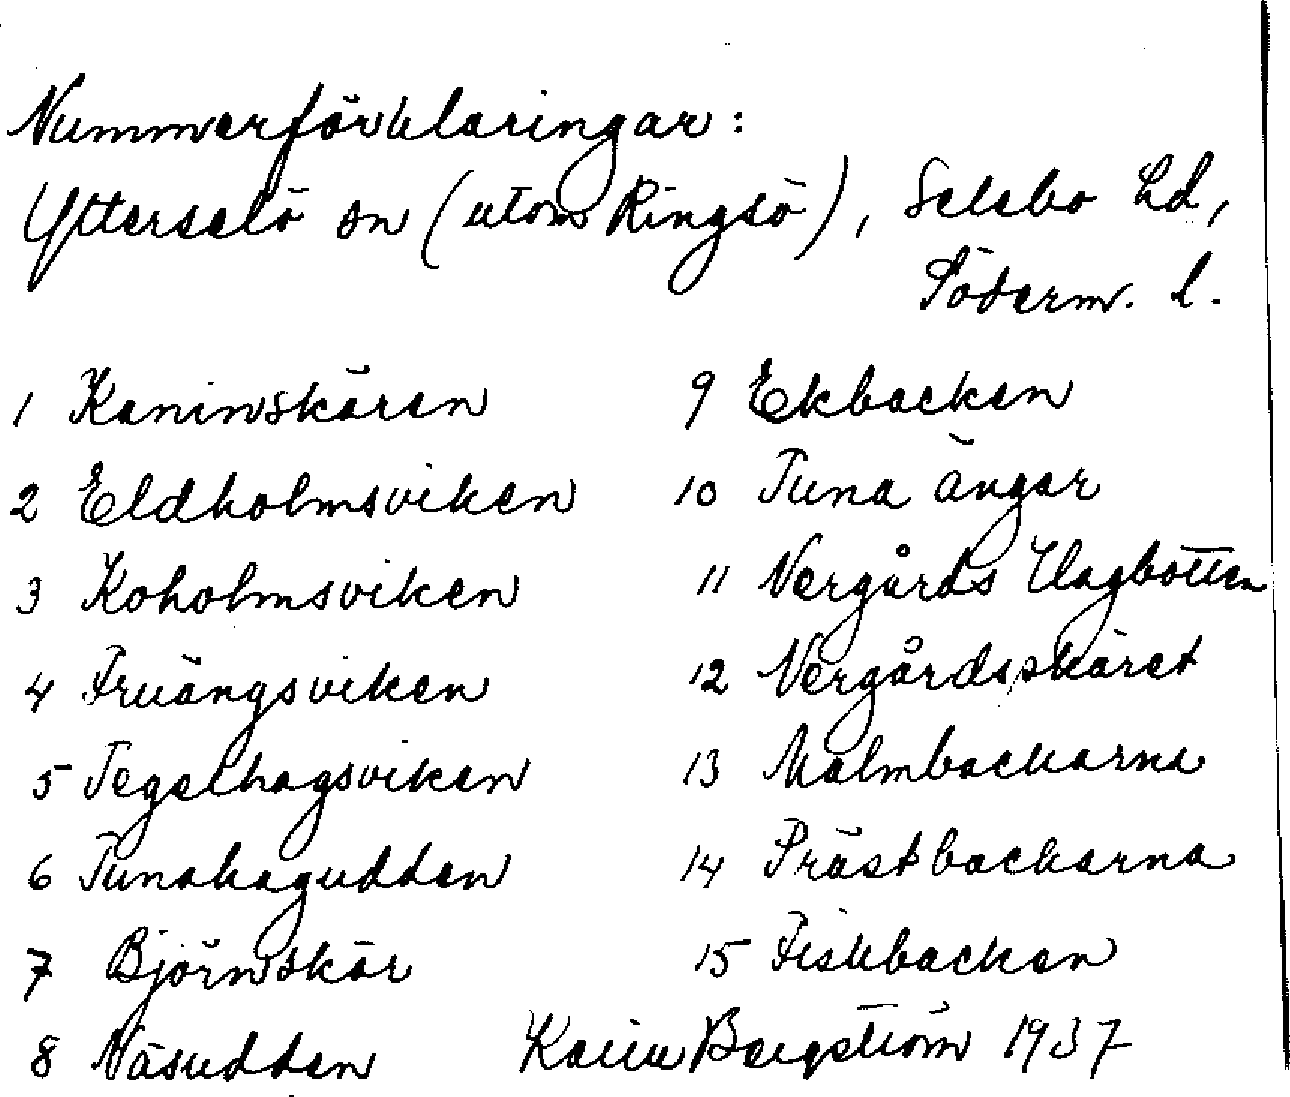 Nummerförklaringar:
Ytterselö sn (utom Ringsö), Selebo hd,
Söderm. l.
1 Kaninskären
2 Eldholmsviken
3 Koholmsviken
4 Fruängsviken
5 Tegelhagsviken
6 Tunahagudden
7 Björnskär
8 Näsudden
9 Ekbacken
10 Tuna ängar
11 Vergårds Hagbotten
12 Vergårdsskäret
13 Malmbackarna
14 Prästbackarna
15 Fiskbacken
Karin Bergström 1937